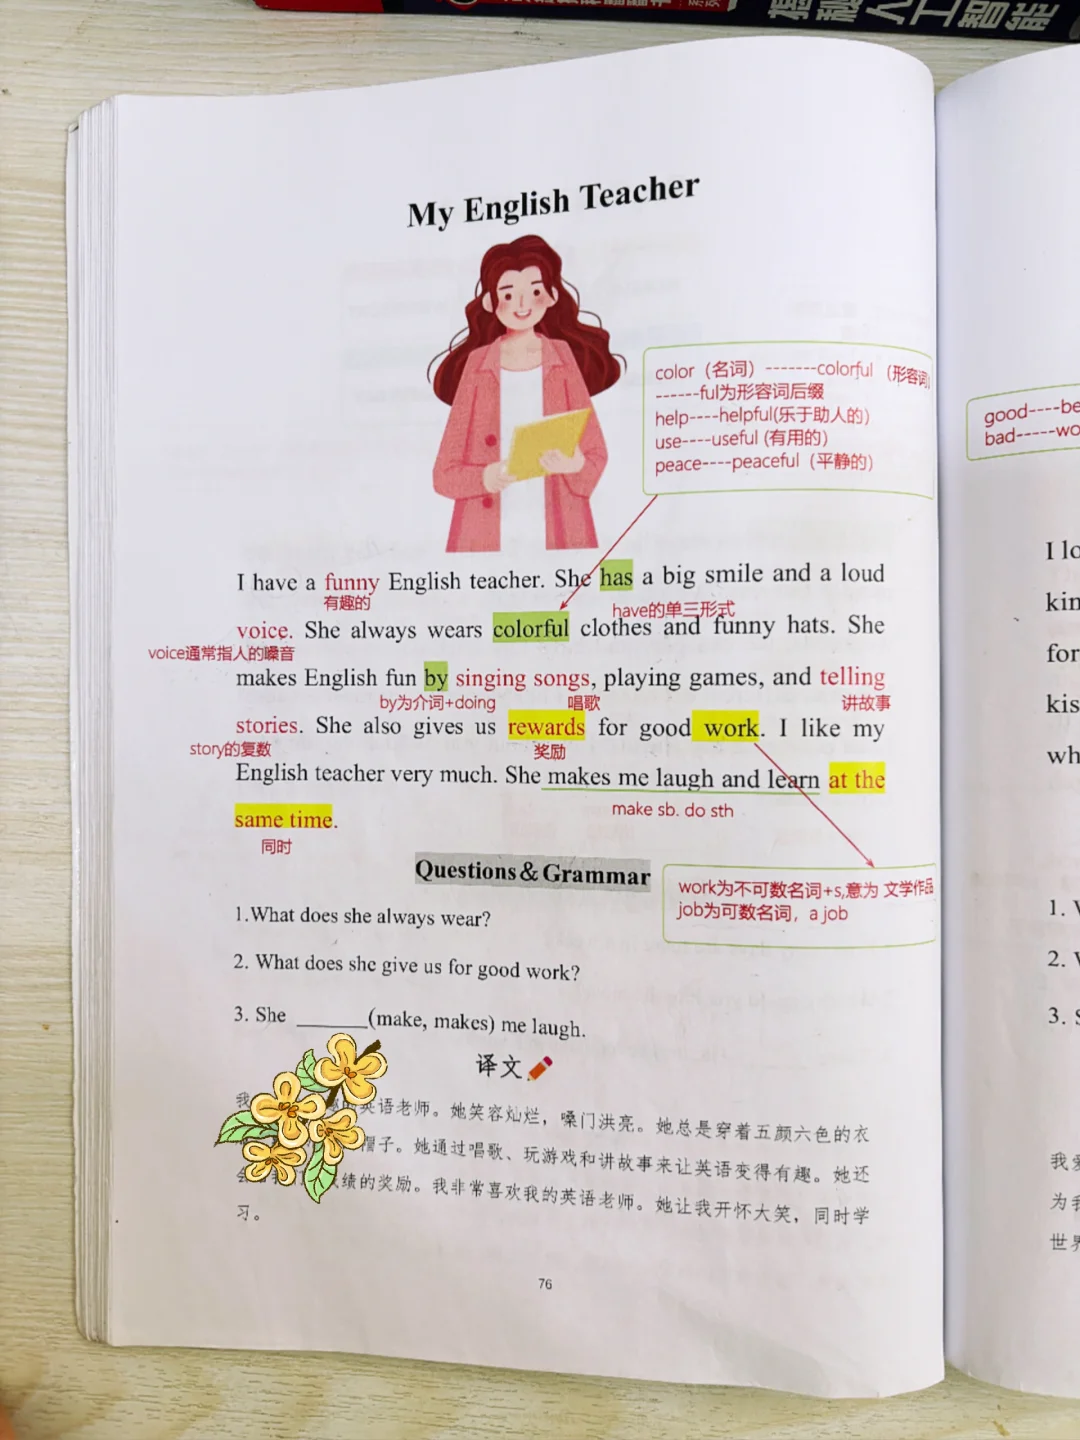 人工智能
My English Teacher
color（名词）-------colorful （形容词）
------ful为形容词后缀
help----helpful(乐于助人的)
use----useful (有用的)
peace----peaceful（平静的）
good----be
bad-----wo
I have a funny English teacher. She has a big smile and a loud
有趣的
have的单三形式
voice. She always wears colorful clothes and funny hats. She
voice通常指人的嗓音
makes English fun by singing songs, playing games, and telling
by为介词+doing 唱歌 讲故事
stories. She also gives us rewards for good work. I like my
story的复数 奖励
English teacher very much. She makes me laugh and learn at the
make sb. do sth
same time.
同时
Questions&Grammar
work为不可数名词+s,意为 文学作品
job为可数名词，a job
1.What does she always wear?
2. What does she give us for good work?
3. She ______(make, makes) me laugh.
译文
我 英语老师。她笑容灿烂，嗓门洪亮。她总是穿着五颜六色的衣
帽子。她通过唱歌、玩游戏和讲故事来让英语变得有趣。她还
绩的奖励。我非常喜欢我的英语老师。她让我开怀大笑，同时学
习。
76
I lo
kin
for
kis
wh
1.
2.
3.
我爱
为我
世界